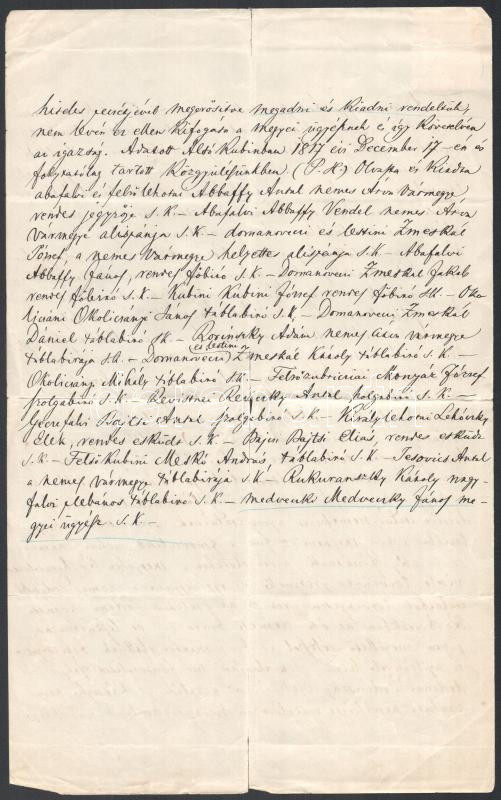 hiteles pecsétjével megerősítve megadni és kiadni rendeltük,
nem lévén ez ellen kifogása a megyei ügyésznek és így követelvén
az igazság. Adatott Alsó Kubinban 1817 évi December 17-én és
folytatólag tartott közgyűlésünkben (P.H.) Olvasta és kiadta
abafalvi és felsőlehotai Abbaffy Antal nemes Árva vármegye
rendes jegyzője s.k. – Abafalvi Abbaffy Vendel nemes Árva
vármegye alispánja s.k. – domanoveci és lestini Zmeskál
József, a nemes vármegye helyettes alispánja s.k. – Abafalvi
Abbaffy János, rendes főbíró s.k. – Domanoveci Zmeskal Jakab
rendes főbíró s.k. – Kubini Kubini József rendes főbíró s.k. – Oko
licsani Okolicsanyi János táblabíró s.k. – Domanoveci Zmeskál
Dániel táblabíró s.k. – Ádám nemes Árva vármegye
táblabírája s.k. – Domanoveci és lestinei Zmeskál Károly táblabíró s.k. –
Okolicsany Mihály táblabíró s.k. – József
szolgabíró s.k. – Reviczky Antal szolgabíró s.k. –
Antal szolgabíró s.k. – Királylehotai Lehóczky
Elek, rendes esküdt s.k. – Bajsi Bajtsi Éliás, rendes esküdt
s.k. – Felső Kubini Meskó András, táblabíró s.k. – Jesovics Antal
a nemes vármegye táblabírája s.k. – Rukuranszky Károly nagy-
falvi plébános táblabíró s.k. – medveczki Medveczky János me-
gyei ügyész s.k. –